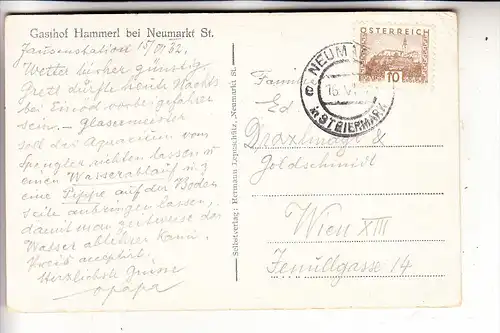 Gasthof Hammerl bei Neumarkt St.
Jausenstation 15/VI 32.
Wetter bisher günstig
Gretl dürfte heute Nachts
bei Einöd vorbeigefahren
sein. – Glasermeister
soll das Aquarium vom
Spengler richten lassen u
einen Wasserablauf u. z
eine Pippe auf der Boden
seite anbringen lassen,
damit man zeitweise das
Wasser ablassen kann.
Preis
Herzlichste Grüsse
opapa
Selbstverlag: Hermann Neumarkt St.
ÖSTERREICH
10
NEUM
in STEIERMARK
Familie
Ed
&
Goldschmidt
Wien XIII
Jenullgasse 14